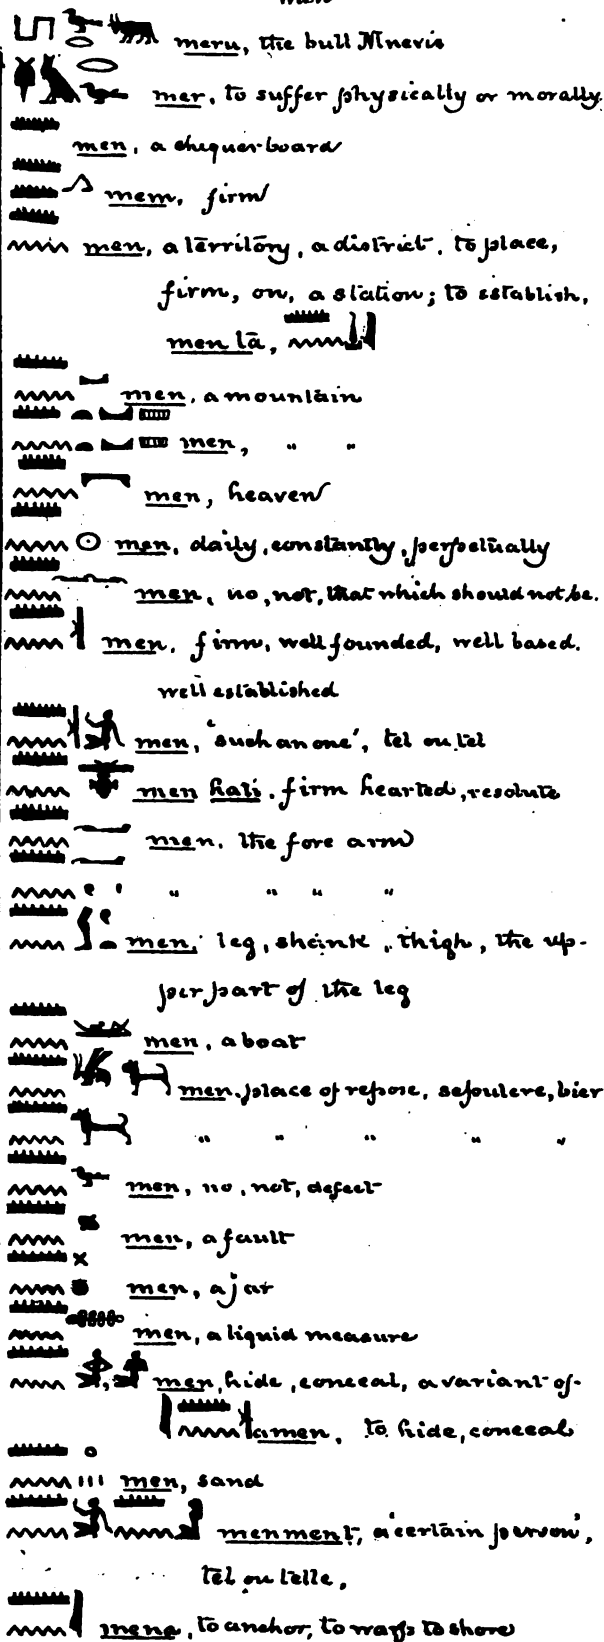 men
meru, the bull Mnevis
mer, to suffer physically or morally.
men, a chequer-board
mem, firm
men, a territory, a district, to place,
firm, on, a station; to establish,
men tā,
men, a mountain
men, " "
men, heaven
men, daily, constantly, perpetually
men, no, not, that which should not be.
men, firm, well founded, well based.
well established
men, 'such an one', tel ou tel
men hati. firm hearted, resolute
men. the fore arm
" " " "
men, leg, shank, thigh, the up-
per part of the leg
men, a boat
men. place of repose, sepulcre, bier
" " " " "
men, no, not, defect
men, a fault
men, a jar
men, a liquid measure
men, hide, conceal, a variant of-
amen, to hide, conceal
men, sand
menment, a 'certain person',
tel ou telle,
mena, to anchor, to warp to shore